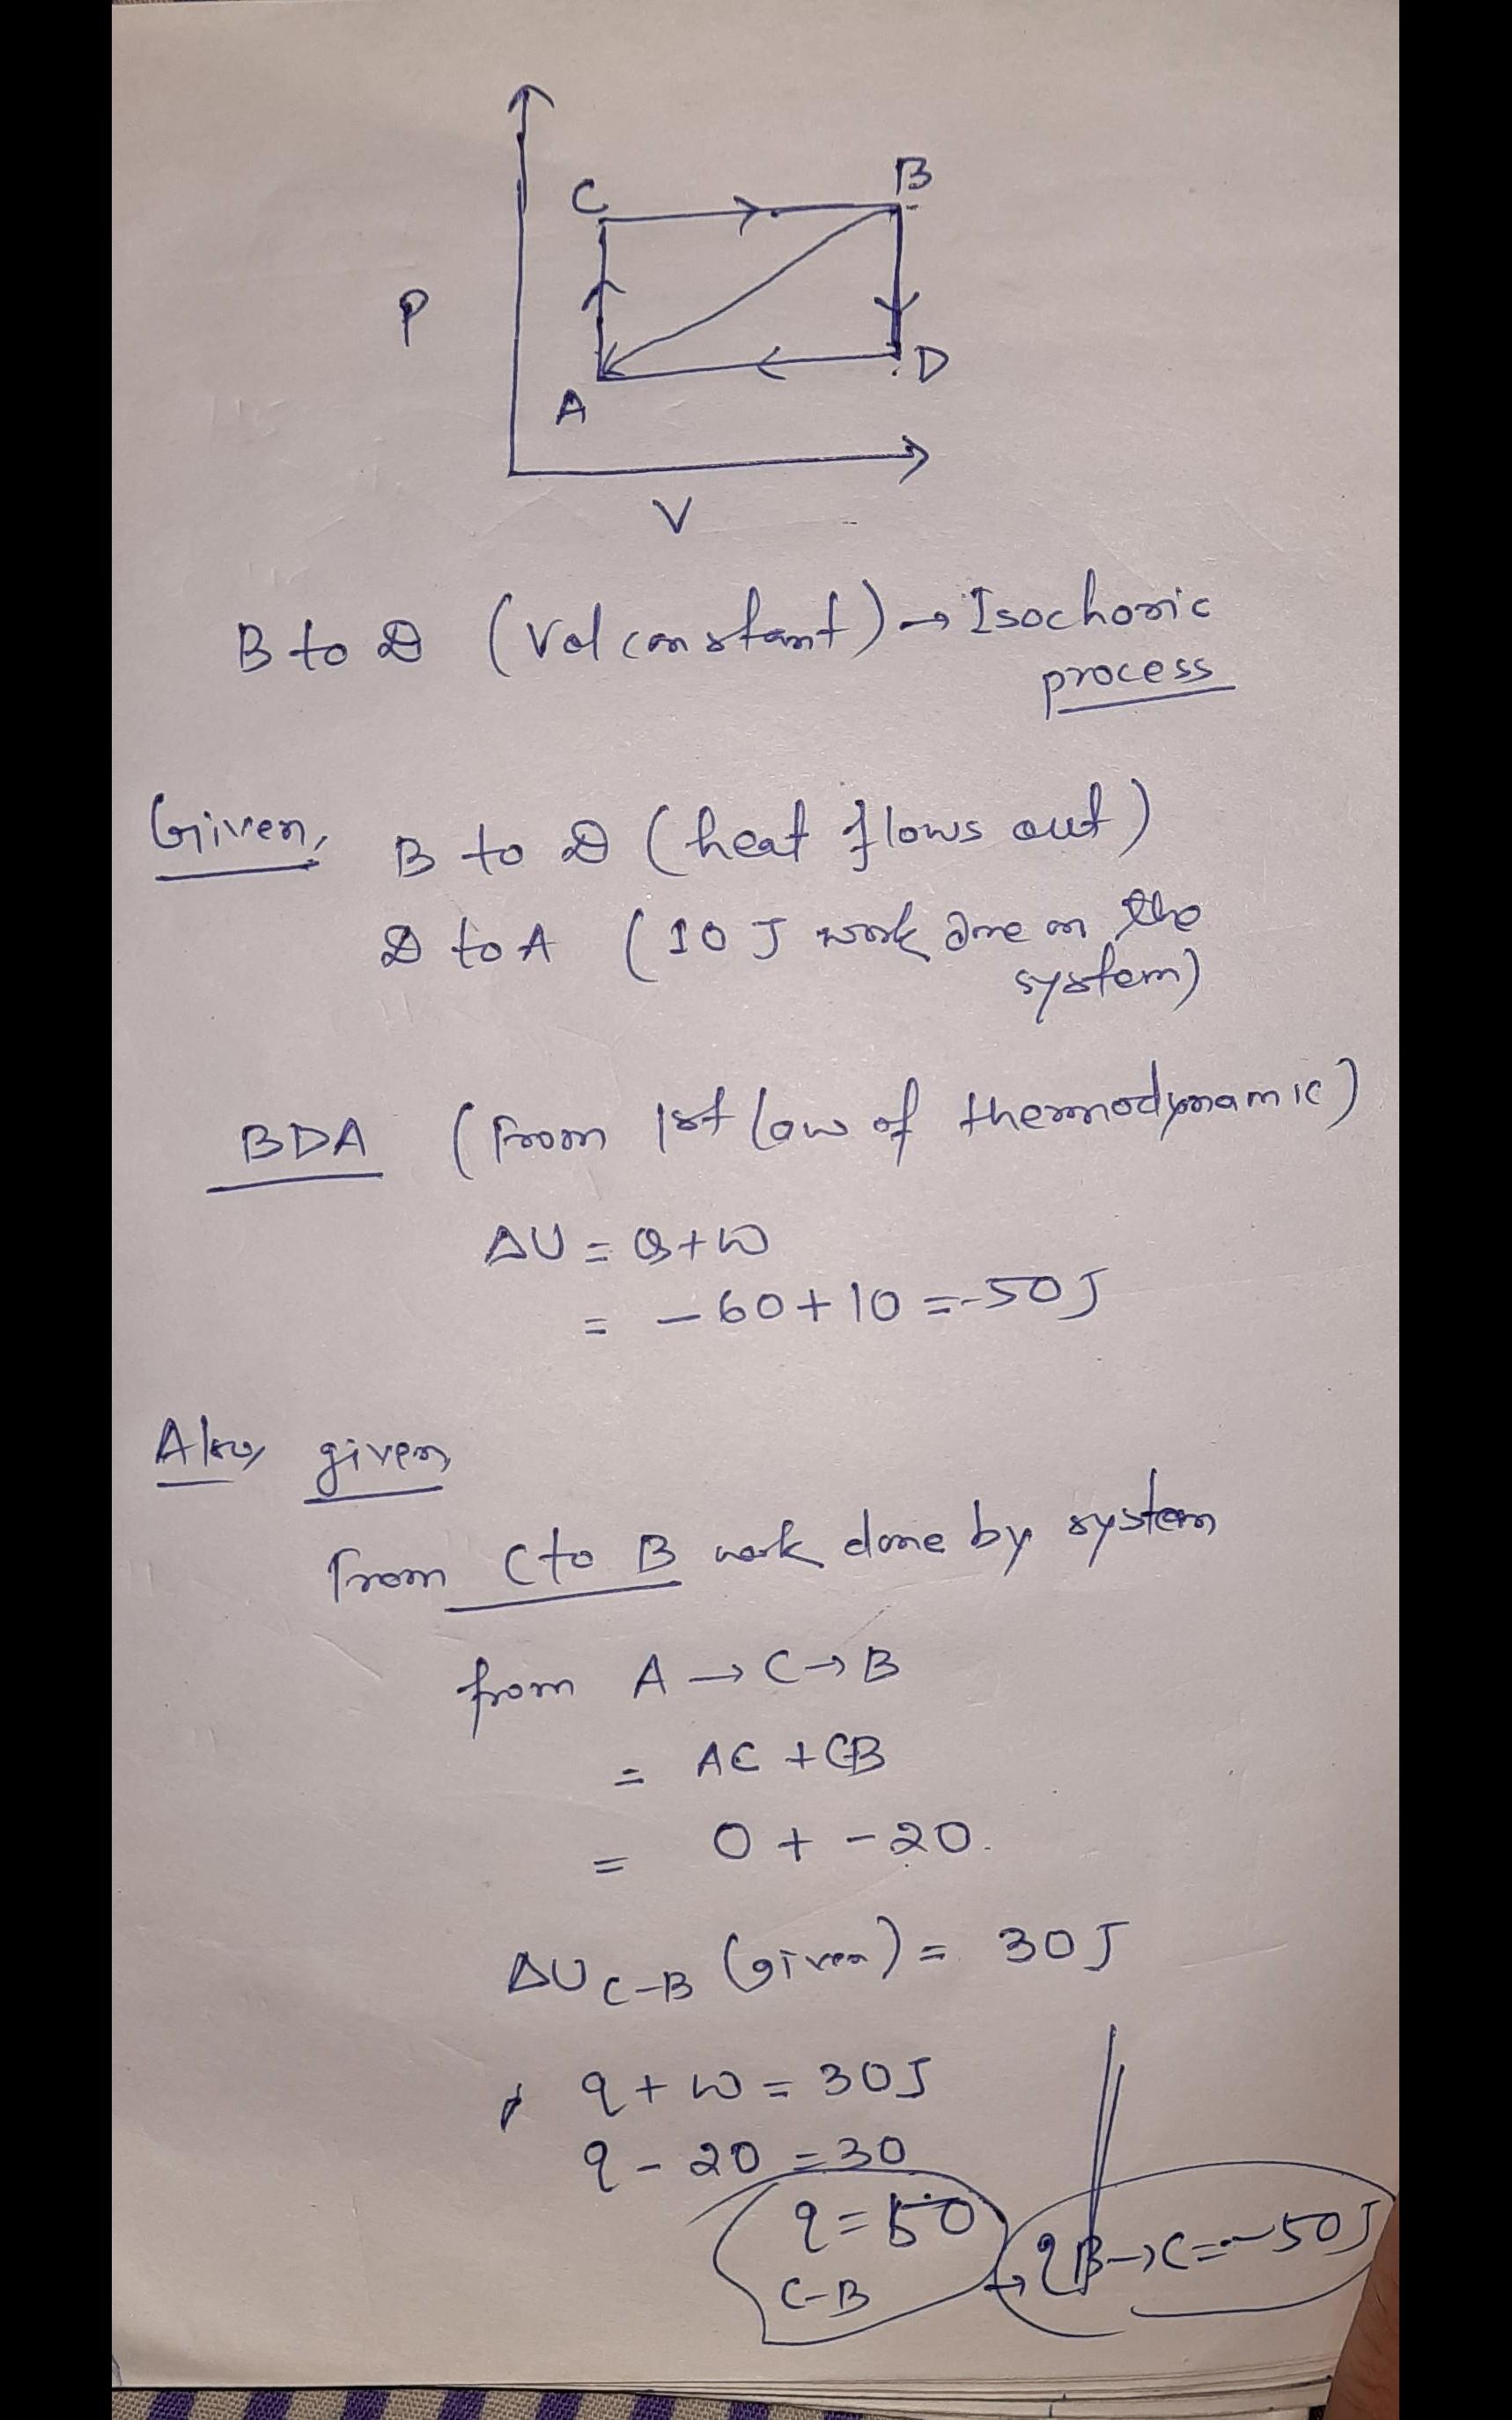 C
B
P
A
D
V
B to D (Vol constant) → Isochoric
process
Given, B to D (heat flows out)
D to A (10 J work done on the
system)
BDA (From 1st law of thermodynamic)
ΔU = Q + W
= -60 + 10 = -50J
Also given
From C to B work done by system
from A → C → B
= AC + CB
= 0 + -20.
ΔU C-B (Given) = 30J
q + w = 30J
q - 20 = 30
q = 50
C-B
→ q B→C = -50J